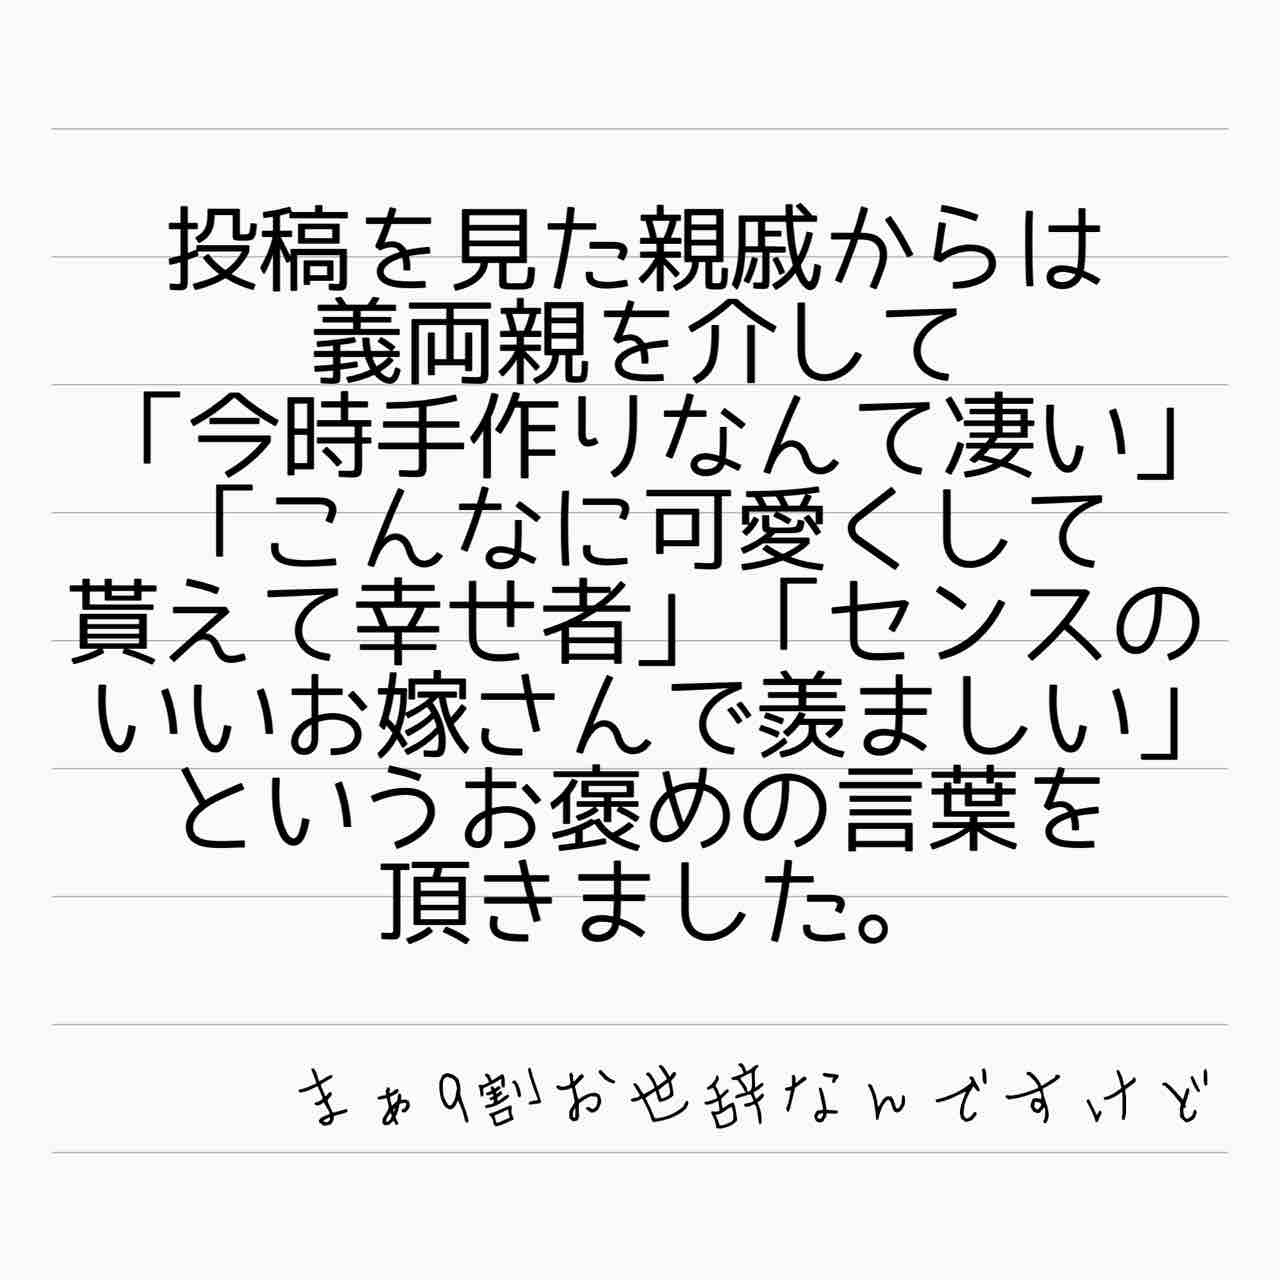 投稿を見た親戚からは
義両親を介して
「今時手作りなんて凄い」
「こんなに可愛くして
貰えて幸せ者」「センスの
いいお嫁さんで羨ましい」
というお褒めの言葉を
頂きました。
まぁ9割お世辞なんですけど